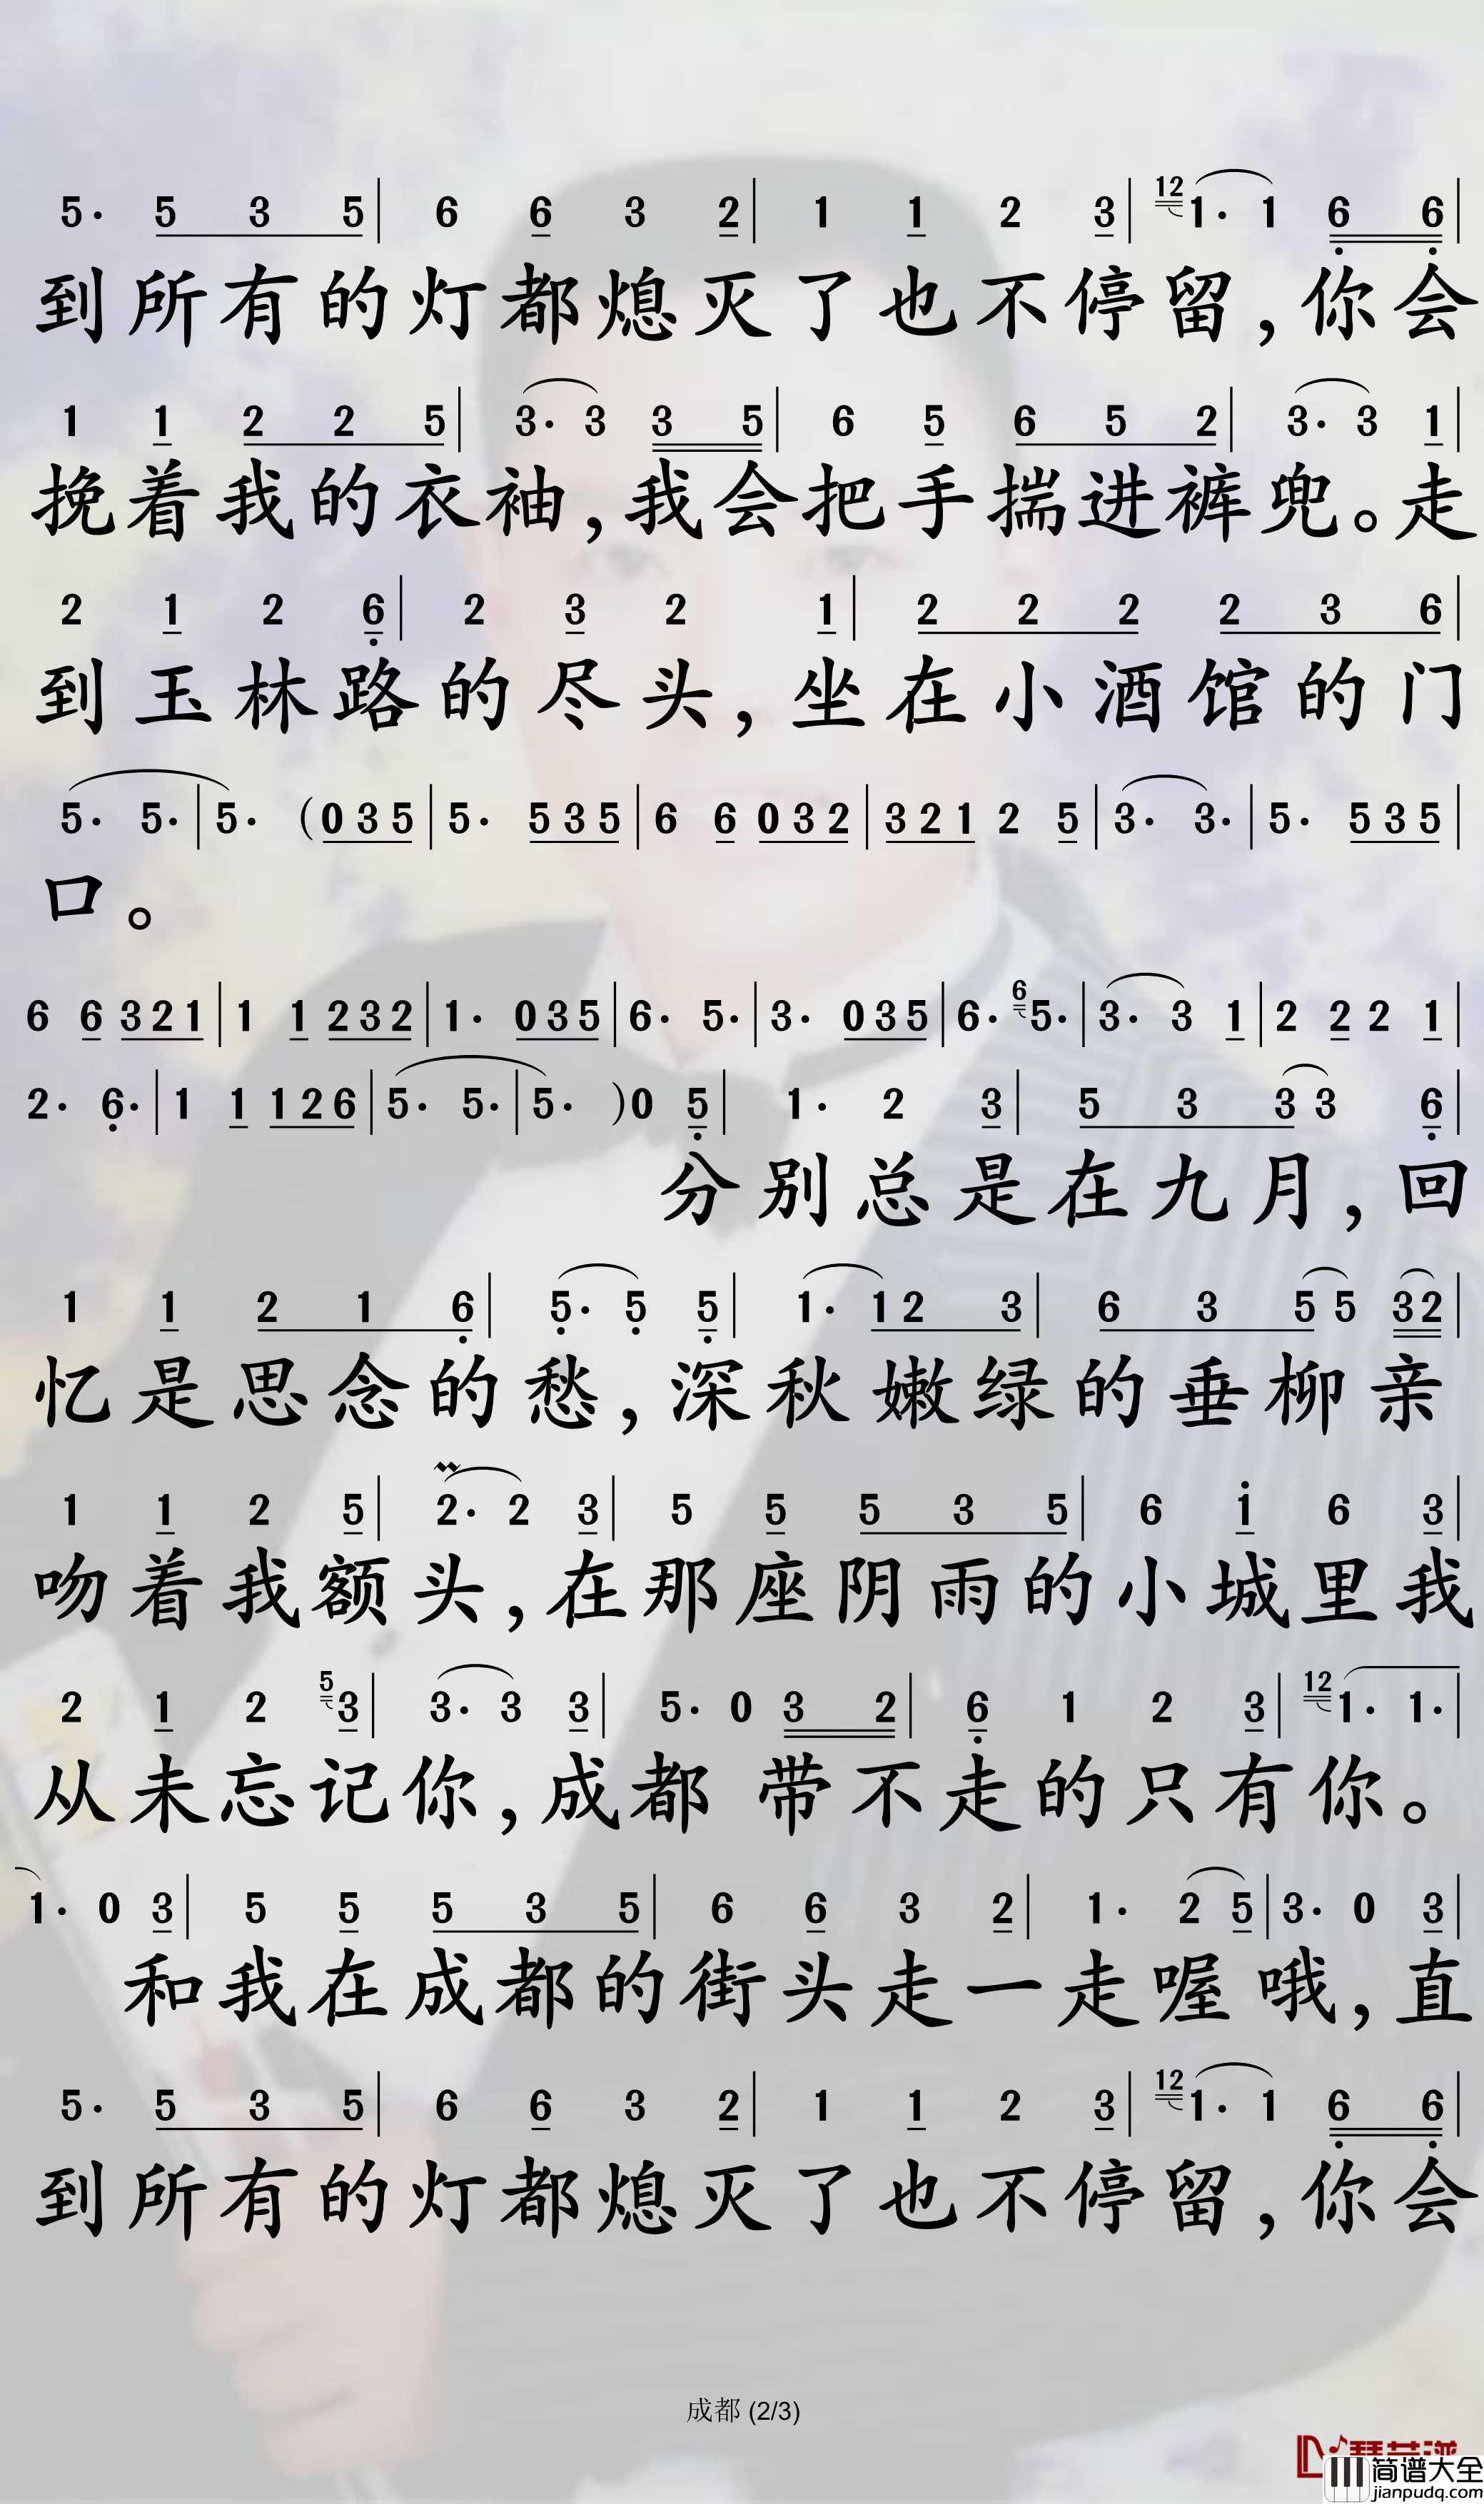 5· 5 3 5 | 6 6 3 2 | 1 1 2 3 | 12 1· 1 6 6 |
到所有的灯都熄灭了也不停留，你会
1 1 2 2 5 | 3· 3 3 5 | 6 5 6 5 2 | 3· 3 1 |
挽着我的衣袖，我会把手揣进裤兜。走
2 1 2 6 | 2 3 2 1 | 2 2 2 2 3 6 |
到玉林路的尽头，坐在小酒馆的门
5· 5· | 5· (0 3 5 | 5· 5 3 5 | 6 6 0 3 2 | 3 2 1 2 5 | 3· 3· | 5· 5 3 5 |
口。
6 6 3 2 1 | 1 1 2 3 2 | 1· 0 3 5 | 6· 5· | 3· 0 3 5 | 6· 6 5· | 3· 3 1 | 2 2 2 1 |
2· 6· | 1 1 1 2 6 | 5· 5· | 5· )0 5 | 1· 2 3 | 5 3 3 3 6 |
分别总是在九月，回
1 1 2 1 6 | 5· 5 5 | 1· 1 2 3 | 6 3 5 5 3 2 |
忆是思念的愁，深秋嫩绿的垂柳亲
1 1 2 5 | 2· 2 3 | 5 5 5 3 5 | 6 1 6 3 |
吻着我额头，在那座阴雨的小城里我
2 1 2 5 3 | 3· 3 3 | 5· 0 3 2 | 6 1 2 3 | 12 1· 1· |
从未忘记你，成都 带不走的只有你。
1· 0 3 | 5 5 5 3 5 | 6 6 3 2 | 1· 2 5 | 3· 0 3 |
和我在成都的街头走一走喔哦，直
5· 5 3 5 | 6 6 3 2 | 1 1 2 3 | 12 1· 1 6 6 |
到所有的灯都熄灭了也不停留，你会
成都 (2/3)
简谱大全
jianpudq.com